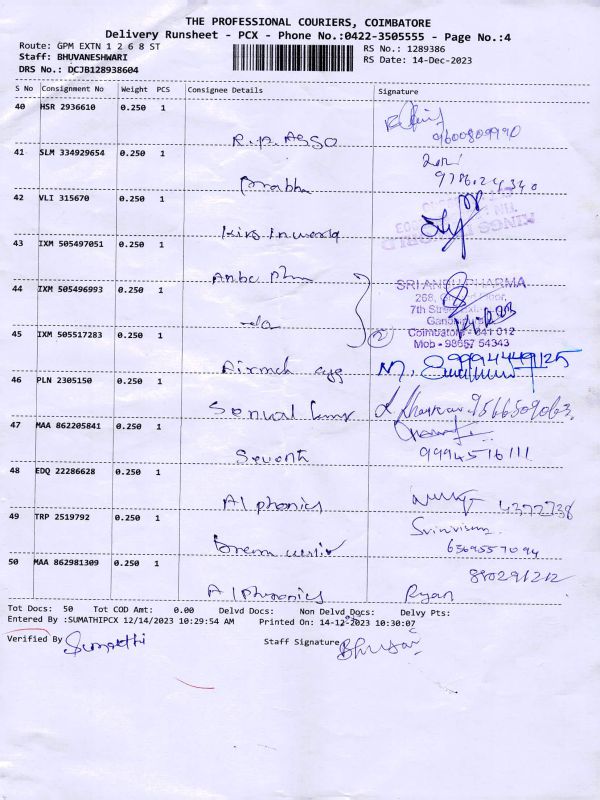 THE PROFESSIONAL COURIERS, COIMBATORE
Delivery Runsheet - PCX - Phone No.:0422-3505555 - Page No.:4
Route: GPM EXTN 1 2 6 8 ST
RS No.: 1289386
Staff: BHUVANESHWARI
RS Date: 14-Dec-2023
DRS No.: DCJB128938604
S No Consignment No Weight PCS Consignee Details Signature
40 HSR 2936610 0.250 1
R.P. ASSO 9600809990
41 SLM 334929654 0.250 1
Prabhu 9786024340
42 VLI 315670 0.250 1
Kings In world
43 IXM 505497051 0.250 1
Anbu Phm
44 IXM 505496993 0.250 1
SRI ANBU PHARMA
268, Ground Floor,
-do- 2 7th Street
Coimbatore - 641 012
45 IXM 505517283 0.250 1
Mob - 98657 54343
9994449125
46 PLN 2305150 0.250 1
9566509063
47 MAA 862205841 0.250 1
9994516111
48 EDQ 22286628 0.250 1
Alphonics 4372738
49 TRP 2519792 0.250 1
Srinivasan
6369557094
50 MAA 862981309 0.250 1
880291212
Alphonics Ryan
Tot Docs: 50 Tot COD Amt: 0.00 Delvd Docs: Non Delvd Docs: Delvy Pts:
Entered By :SUMATHIPCX 12/14/2023 10:29:54 AM Printed On: 14-12-2023 10:30:07
Verified By Sumathi Staff Signature